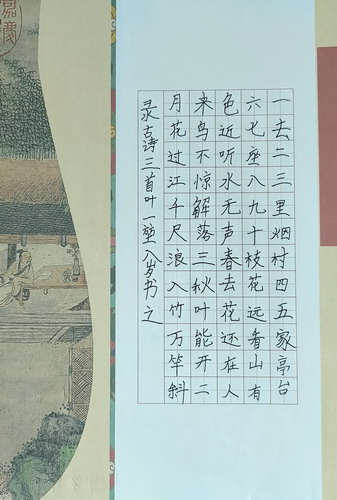 一去二三里烟村四五家亭台
六七座八九十枝花远看山有
色近听水无声春去花还在人
来鸟不惊解落三秋叶能开二
月花过江千尺浪入竹万竿斜
录古诗三首叶一堃八岁书之